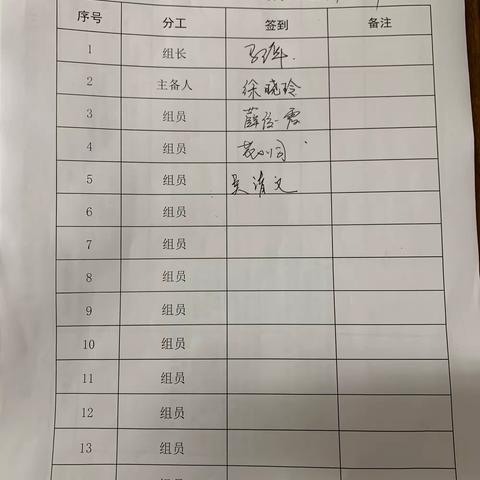 序号 分工 签到 备注
1 组长
2 主备人 徐晓玲
3 组员 薛
4 组员
5 组员 吴清文
6 组员
7 组员
8 组员
9 组员
10 组员
11 组员
12 组员
13 组员
组员